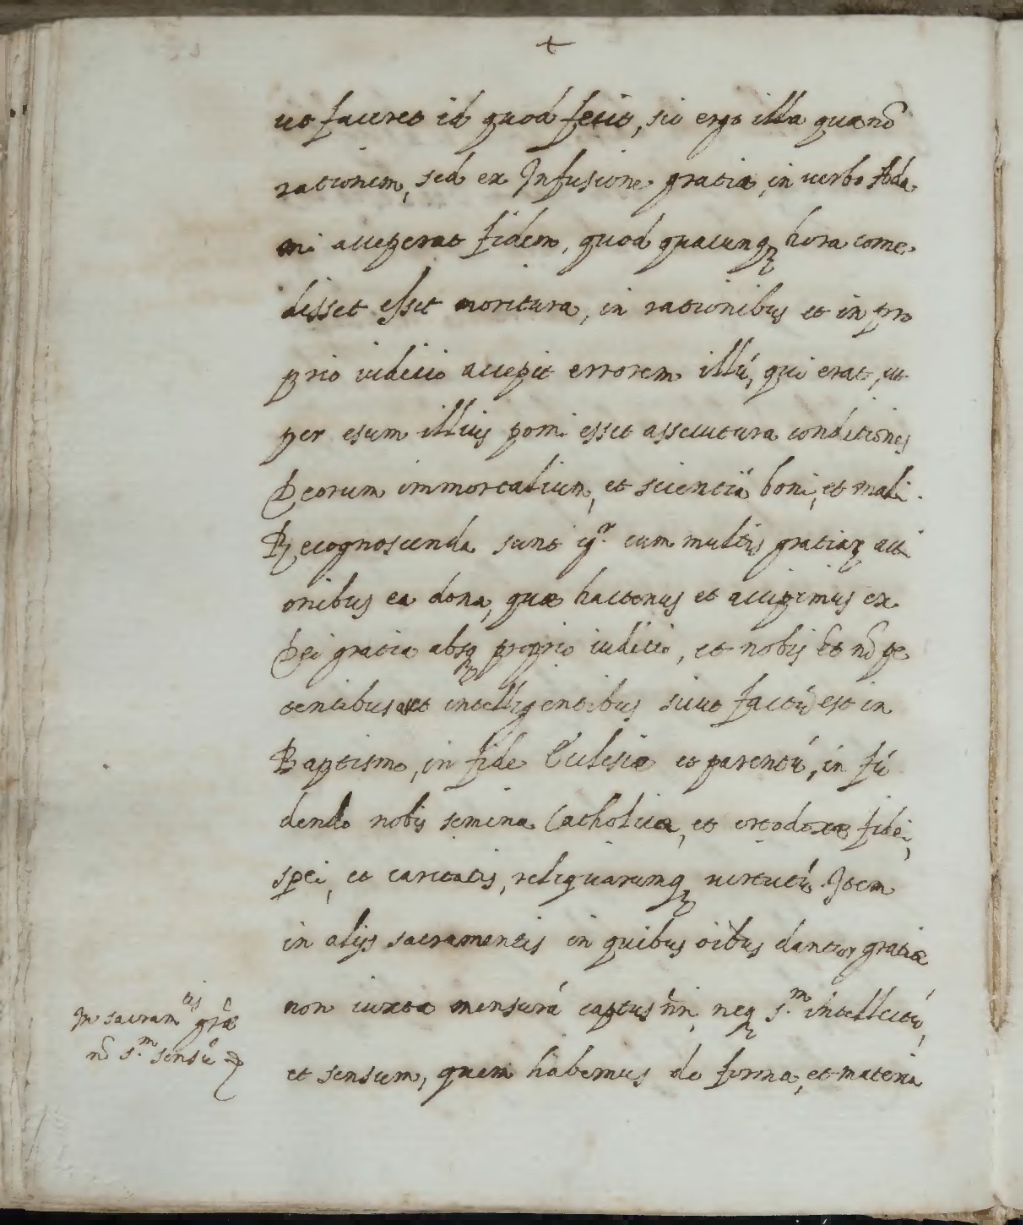 +
ut faceret id quod fecit, sic ergo illa quæ nō
rationem, sed ex Infusione gratiæ, in uerbo Ada
mi acceperat fidem, quod quacunq; hora come
disset esset moritura, in rationibus et in pro
prio iudicio accepit errorem illū, qui erat, ut
per esum illius pomi esset assecutura conditiones
Deorum immortalium, et scientiā boni, et mali.
Recognoscenda sunt igr. cum multis gratiarū acti
onibus ea dona, quæ hactenus et accipimus ex
Dei gratia absq; proprio iuditio, et nobis et nō pe
tentibus et intelligentibus sicut factū est in
Baptismo, in fide Ecclesiæ et parentū, in fū
dendo nobis semina Catholicæ, et ortodoxæ fidei,
spei, et caritatis, reliquarumq; uirtutū. Item
in alijs sacramentis in quibus oībus dantur gratiæ
non iuxta mensurā captus nri, neq; s.m intellectū,
et sensum, quem habemus de forma, et materia
In sacramtis græ
nō s.m sensū